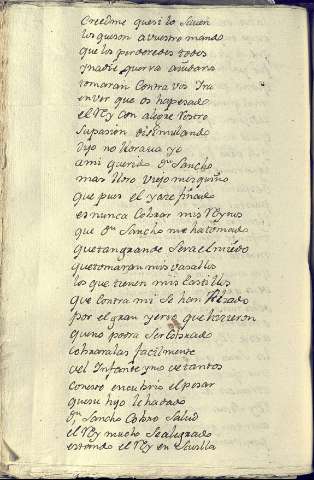 Creedme que si lo saven
los que son a vuestro mando
que los perderedes todos
y nadie querra ayudaros
tomaran contra vos Ira
en ver que os ha pesado
el Rey con alegre rostro
su pasion disimulando
dijo no lloraua yo
a mi querido Dn Sancho
mas lloro viejo mezquino
que pues el yace finado
es nunca cobrar mis Reynos
que Dn Sancho me ha tomado
que tan grande sera el miedo
que tomaran mis vasallos
los que tienen mis castillos
que contra mi se han Alzado
por el gran yerro que hizieron
que no podra ser cobrado
cobraralas facilmente
del Infante y no de tantos
con esto encubrio el pesar
que su hijo le ha dado
Dn Sancho cobro salud
el Rey mucho se alegrado
estando el Rey en Sevilla